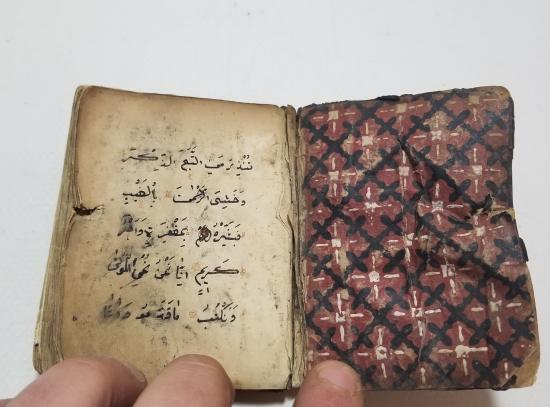 تنذر من اتبع الذكر
وخشى الرحمن بالغيب
فبشره بمغفرة واجر
كريم انا نحن نحى الموتى
ونكتب ما قدموا